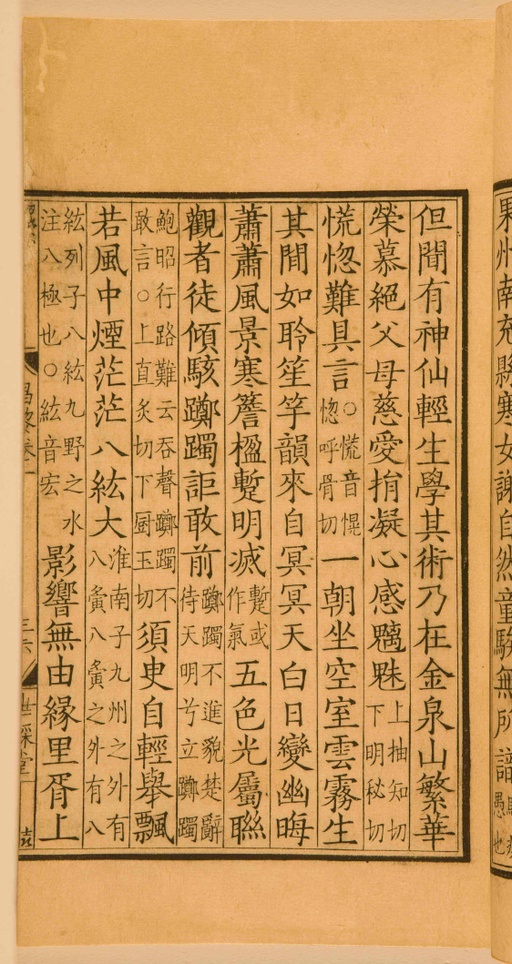 果州南充縣寒女謝自然童騃無所識
但聞有神仙輕生學其術乃在金泉山繁華
榮慕絕父母慈愛捐凝心感魑魅上抽知切下明秘切
慌惚難具言○慌音幌惚呼骨切一朝坐空室雲霧生
其間如聆笙竽韻來自冥冥天白日變幽晦
蕭蕭風景寒簷楹蹔明滅蹔或作氣五色光屬聯
觀者徒傾駭躑躅詎敢前躑躅不進貌楚辭待天明兮立躑躅
鮑昭行路難云吞聲躑躅不敢言○上直炙切下厨玉切須臾自輕舉飄
若風中煙茫茫八紘大淮南子九州之外有八夤八夤之外有八
紘列子八紘九野之水注八極也○紘音宏影響無由緣里胥上
昌黎卷一
世綵堂